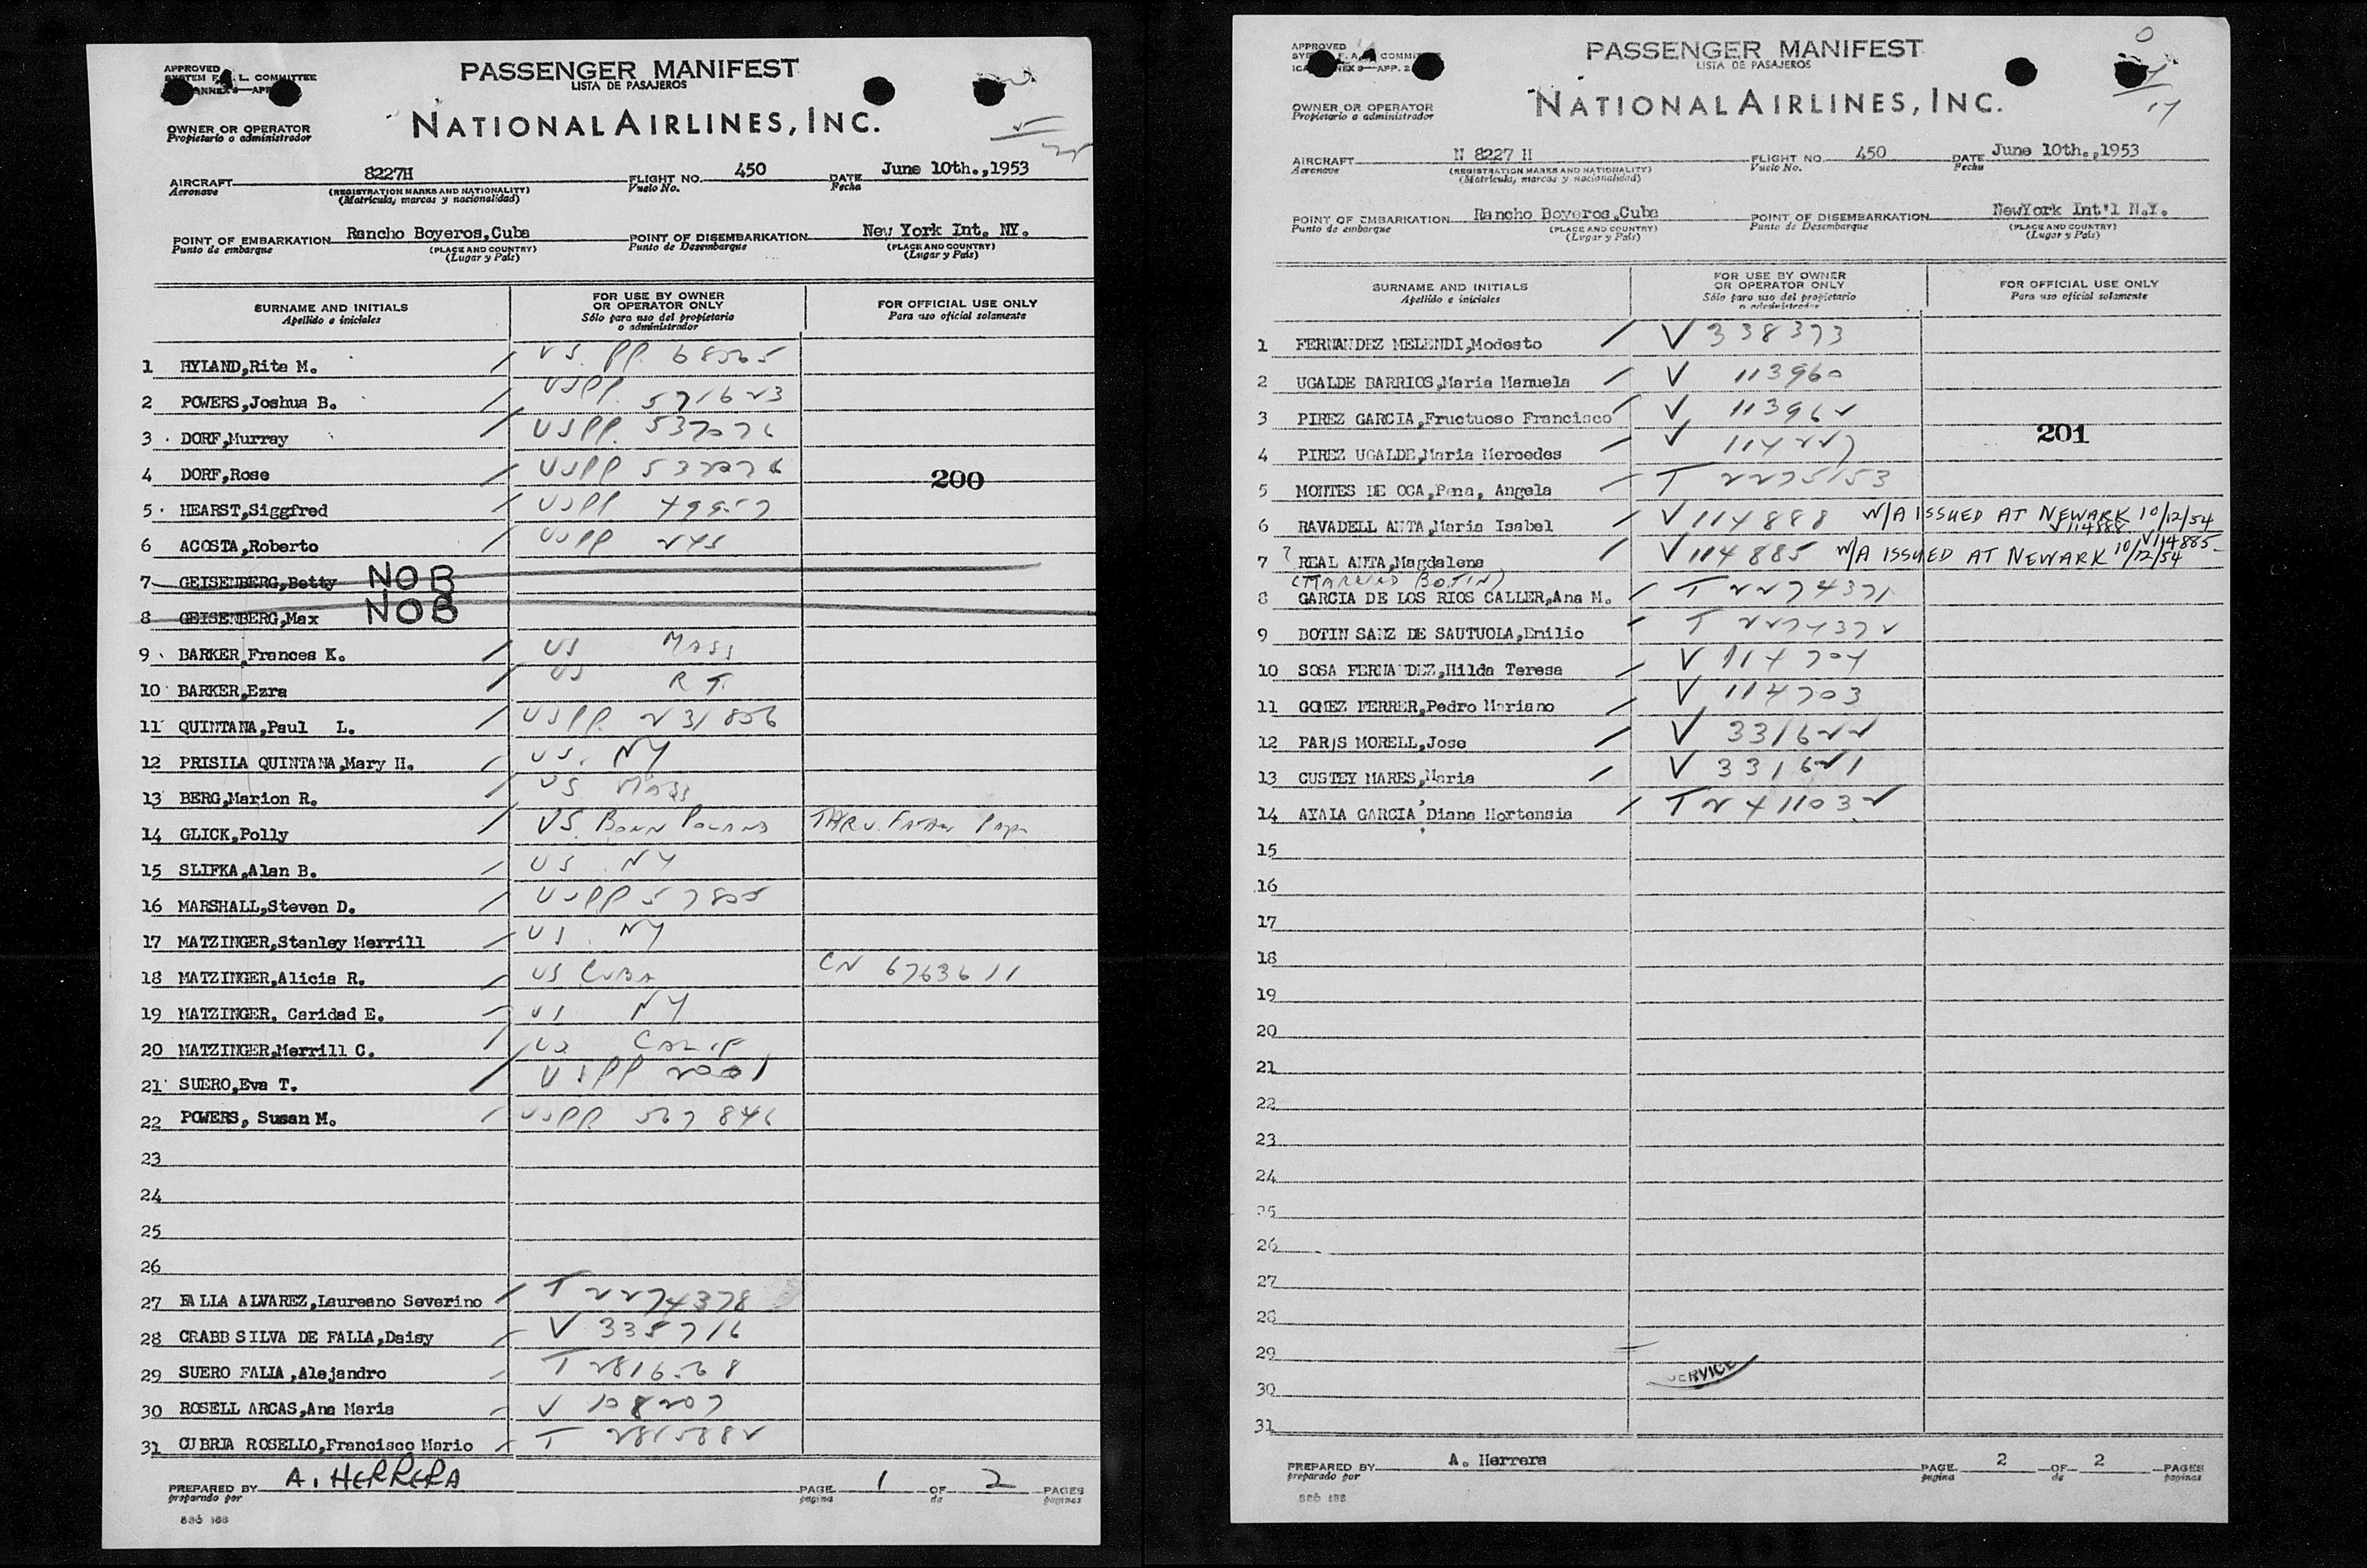 APPROVED
SYSTEM F. A. L. COMMITTEE
ANNEX 9—APP
PASSENGER MANIFEST
LISTA DE PASAJEROS
OWNER OR OPERATOR
Propietario o administrador
NATIONAL AIRLINES, INC.
AIRCRAFT 8227H FLIGHT NO. 450 DATE June 10th.,1953
Aeronave (REGISTRATION MARKS AND NATIONALITY) Vuelo No. Fecha
(Matricula, marcas y nacionalidad)
POINT OF EMBARKATION Rancho Boyeros,Cuba POINT OF DISEMBARKATION New York Int. NY.
Punto de embarque (PLACE AND COUNTRY) Punto de Desembarque (PLACE AND COUNTRY)
(Lugar y País) (Lugar y País)
SURNAME AND INITIALS FOR USE BY OWNER OR OPERATOR ONLY FOR OFFICIAL USE ONLY
Apellido e iniciales Sólo para uso del propietario o administrador Para uso oficial solamente
1 HYLAND,Rita M. / US. PP.
2 POWERS,Joshua B. / USPP.
3 DORF,Murray / USPP.
4 DORF,Rose / USPP
200
5 HEARST,Siggfred / USPP
6 ACOSTA,Roberto / USPP
7 GEISENBERG,Betty NOB
8 GEISENBERG,Max NOB
9 BARKER,Frances K. / US MASS
10 BARKER,Ezra / US
11 QUINTANA,Paul L. / USPP. 231856
12 PRISILA QUINTANA,Mary H. / US. NY
13 BERG,Marion R. US MASS
14 GLICK,Polly / US. BORN POLAND THRU. FATHER
15 SLIFKA,Alan B. / US. NY
16 MARSHALL,Steven D. / USPP
17 MATZINGER,Stanley Merrill / US. NY
18 MATZINGER,Alicia R. / US CUBA CN 6763611
19 MATZINGER. Caridad E. / US NY
20 MATZINGER,Merrill C. / US CALIF
21 SUERO,Eva T. / USPP 2001
22 POWERS, Susan M. / USPP. 567846
23
24
25
26
27 FALLA ALVAREZ,Laureano Severino / T 2274378
28 CRABB SILVA DE FALLA,Daisy / V 335716
29 SUERO FALLA,Alejandro / T
30 ROSELL ARCAS,Ana Maria / V 108207
31 CUBRIA ROSELLO,Francisco Mario / T 2815882
PREPARED BY A. HERRERA PAGE 1 OF 2 PAGES
preparado por pagina de paginas
APPROVED
F. A. COMMITTEE
ANNEX 9—APP. 2
PASSENGER MANIFEST
LISTA DE PASAJEROS
17
OWNER OR OPERATOR
Propietario o administrador
NATIONAL AIRLINES, INC.
AIRCRAFT N 8227 H FLIGHT NO. 450 DATE June 10th.,1953
Aeronave (REGISTRATION MARKS AND NATIONALITY) Vuelo No. Fecha
(Matricula, marcas y nacionalidad)
POINT OF EMBARKATION Rancho Boyeros,Cuba POINT OF DISEMBARKATION NewYork Int'l N.Y.
Punto de embarque (PLACE AND COUNTRY) Punto de Desembarque (PLACE AND COUNTRY)
(Lugar y País) (Lugar y País)
SURNAME AND INITIALS FOR USE BY OWNER OR OPERATOR ONLY FOR OFFICIAL USE ONLY
Apellido e iniciales Sólo para uso del propietario o administrador Para uso oficial solamente
1 FERNANDEZ MELENDI,Modesto / V 338373
2 UGALDE BARRIOS,Maria Manuela / V 113960
3 PIREZ GARCIA,Fructuoso Francisco / V 113962
201
4 PIREZ UGALDE,Maria Mercedes / V 114227
5 MONTES DE OCA,Pena, Angela / T 2275153
6 RAVADELL ANTA,Maria Isabel / V 114888 W/A ISSUED AT NEWARK 10/12/54
V114888
7 ? REAL ANTA,Magdalena / V 114885 W/A ISSUED AT NEWARK 10/12/54
V114885
(MARRIED BOTIN)
8 GARCIA DE LOS RIOS CALLER,Ana M. / T 2274371
9 BOTIN SANZ DE SAUTUOLA,Emilio / T 2274372
10 SOSA FERNANDEZ,Hilda Teresa / V 114704
11 GOMEZ FERRER,Pedro Mariano / V 114703
12 PARIS MORELL,Jose / V 331622
13 CUSTEY MARES,Maria / V 331621
14 AYALA GARCIA,Diana Hortensia / T 2411032
15
16
17
18
19
20
21
22
23
24
25
26
27
28
29
SERVICE
30
31
PREPARED BY A. Herrera PAGE 2 OF 2 PAGES
preparado por pagina de paginas